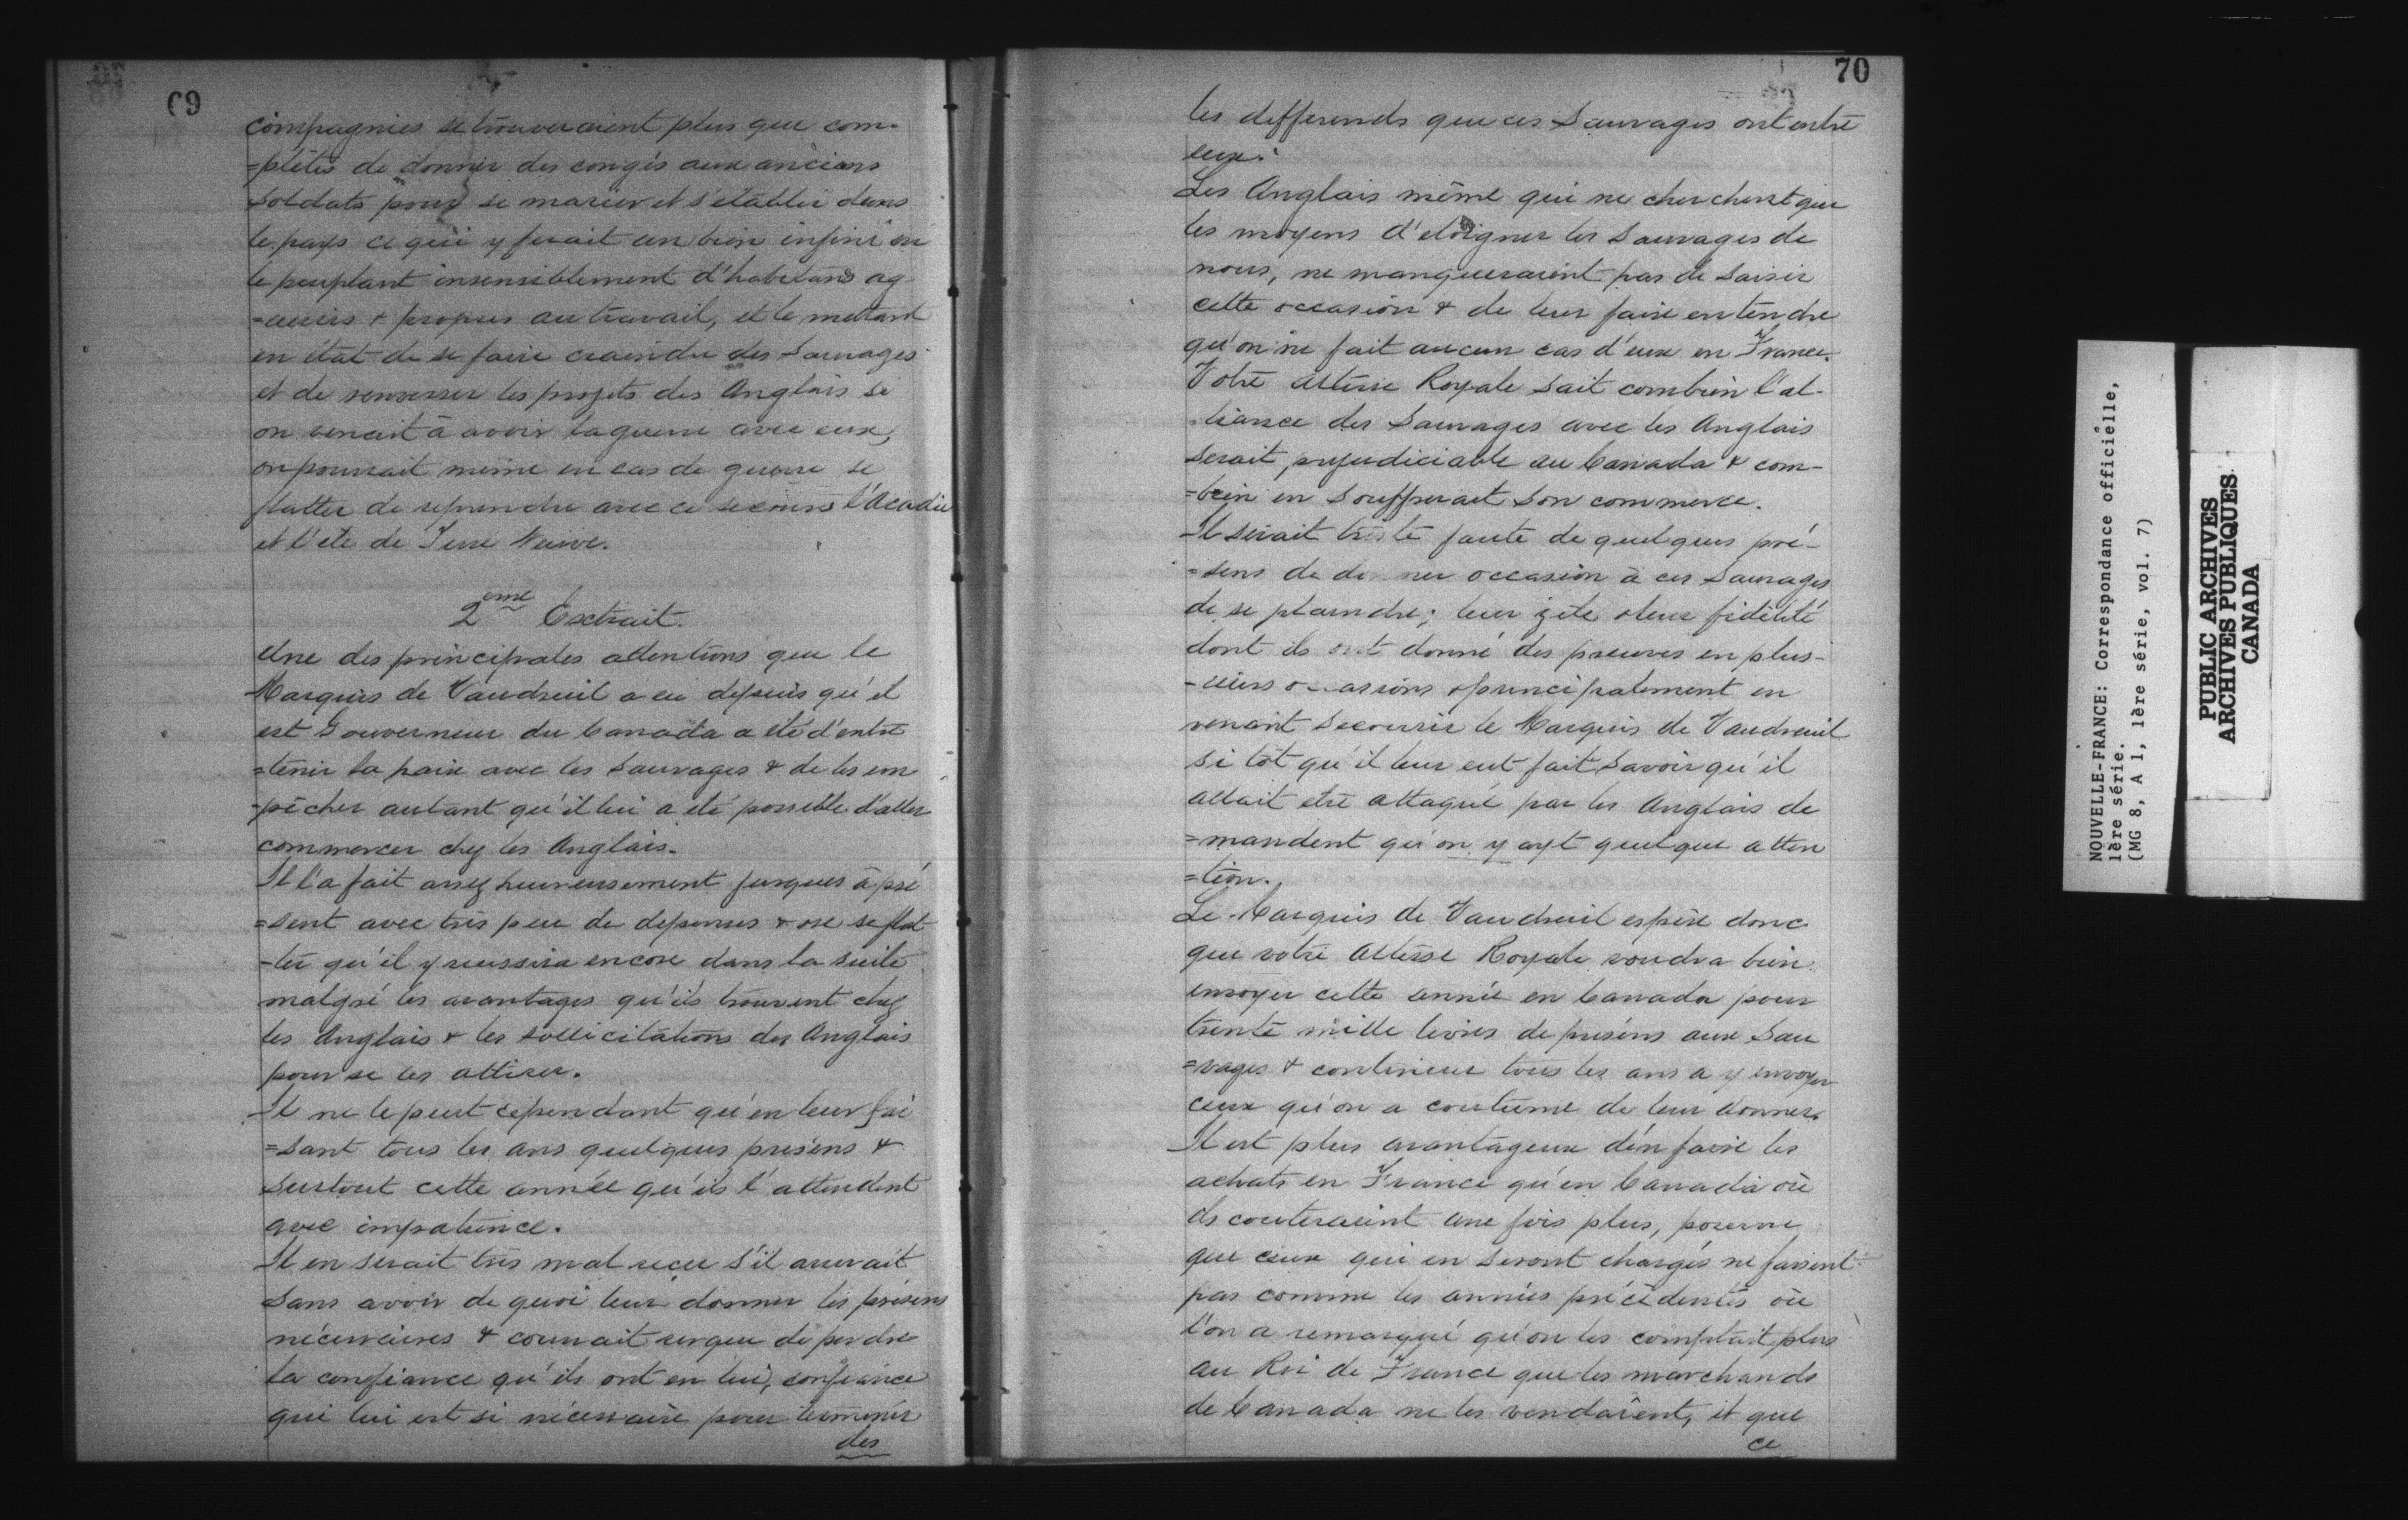 69
compagnies se trouveraient plus que com-
=plètes de donner des congés aux anciens
soldats pour se marier et s'établir dans
le pays ce qui y ferait un bien infini en
le peuplant insensiblement d'habitans ag
=uerris & propres au travail, et le mettant
en état de se faire craindre des Sauvages
et de renverser les projets des Anglais si
on venait à avoir la guerre avec eux,
on pourrait même en cas de guerre se
flatter de reprendre avec ce secours l'Acadie
et l'ile de Terre Neuve.
2eme Extrait.
Une des principales attentions que le
Marquis de Vaudreuil a eu depuis qu'il
est Gouverneur du Canada a été d'entre
=tenir la paix avec les Sauvages & de les em
-pêcher autant qu'il lui a été possible d'aller
commercer chez les Anglais.
Il l'a fait assez heureusement jusques à pré
=sent avec très peu de depenses & ose se flat
-ter qu'il y reussira encore dans la suite
malgré les avantages qu'ils trouvent chez
les Anglais & les sollicitations des Anglais
pour se les attirer.
Il ne le peut cependant qu'en leur fai
=sant tous les ans quelques présens &
surtout cette année qu'ils l'attendent
avec impatience.
Il en serait très mal reçu s'il arrivait
sans avoir de quoi leur donner les présens
nécessaires & courrait risque de perdre
la confiance qu'ils ont en lui, confiance
qui lui est si nécessaire pour terminer
des
70
les differends que ces Sauvages ont entre
eux.
Les Anglais même qui ne cherchent que
les moyens d'eloigner les Sauvages de
nous, ne manqueraient pas de saisir
cette occasion & de leur faire entendre
qu'on ne fait aucun cas d'eux en France.
Votre altesse Royale sait combien l'al-
-liance des Sauvages avec les Anglais
serait prejudiciable au Canada & com-
=bien en souffrirait son commerce.
Il serait triste faute de quelques pré-
=sens de donner occasion à ces Sauvages
de se plaindre; leur zèle & leur fidélité
dont ils ont donné des preuves en plus-
-ieurs occasions & principalement en
venant secourir le Marquis de Vaudreuil
si tôt qu'il leur eut fait savoir qu'il
allait etre attaqué par les Anglais de
=mandent qu'on y ayt quelque atten
=tion.
Le Marquis de Vaudreuil espère donc
que votre altesse Royale voudra bien
envoyer cette année en Canada pour
trente mille livres de présens aux Sau
=vages & continuer tous les ans a y envoyer
ceux qu'on a coutume de leur donner.
Il est plus avantageux d'en faire les
achats en France qu'en Canada où
ils couteraient une fois plus, pourvu
que ceux qui en seront chargés ne fassent
pas comme les années précédentes où
l'on a remarqué qu'on les comptait plus
au Roi de France que les marchands
de Canada ne les vendaient, et que
ce
NOUVELLE-FRANCE: Correspondance officielle,
1ère série.
(MG 8, A 1, 1ère série, vol. 7)
PUBLIC ARCHIVES
ARCHIVES PUBLIQUES
CANADA